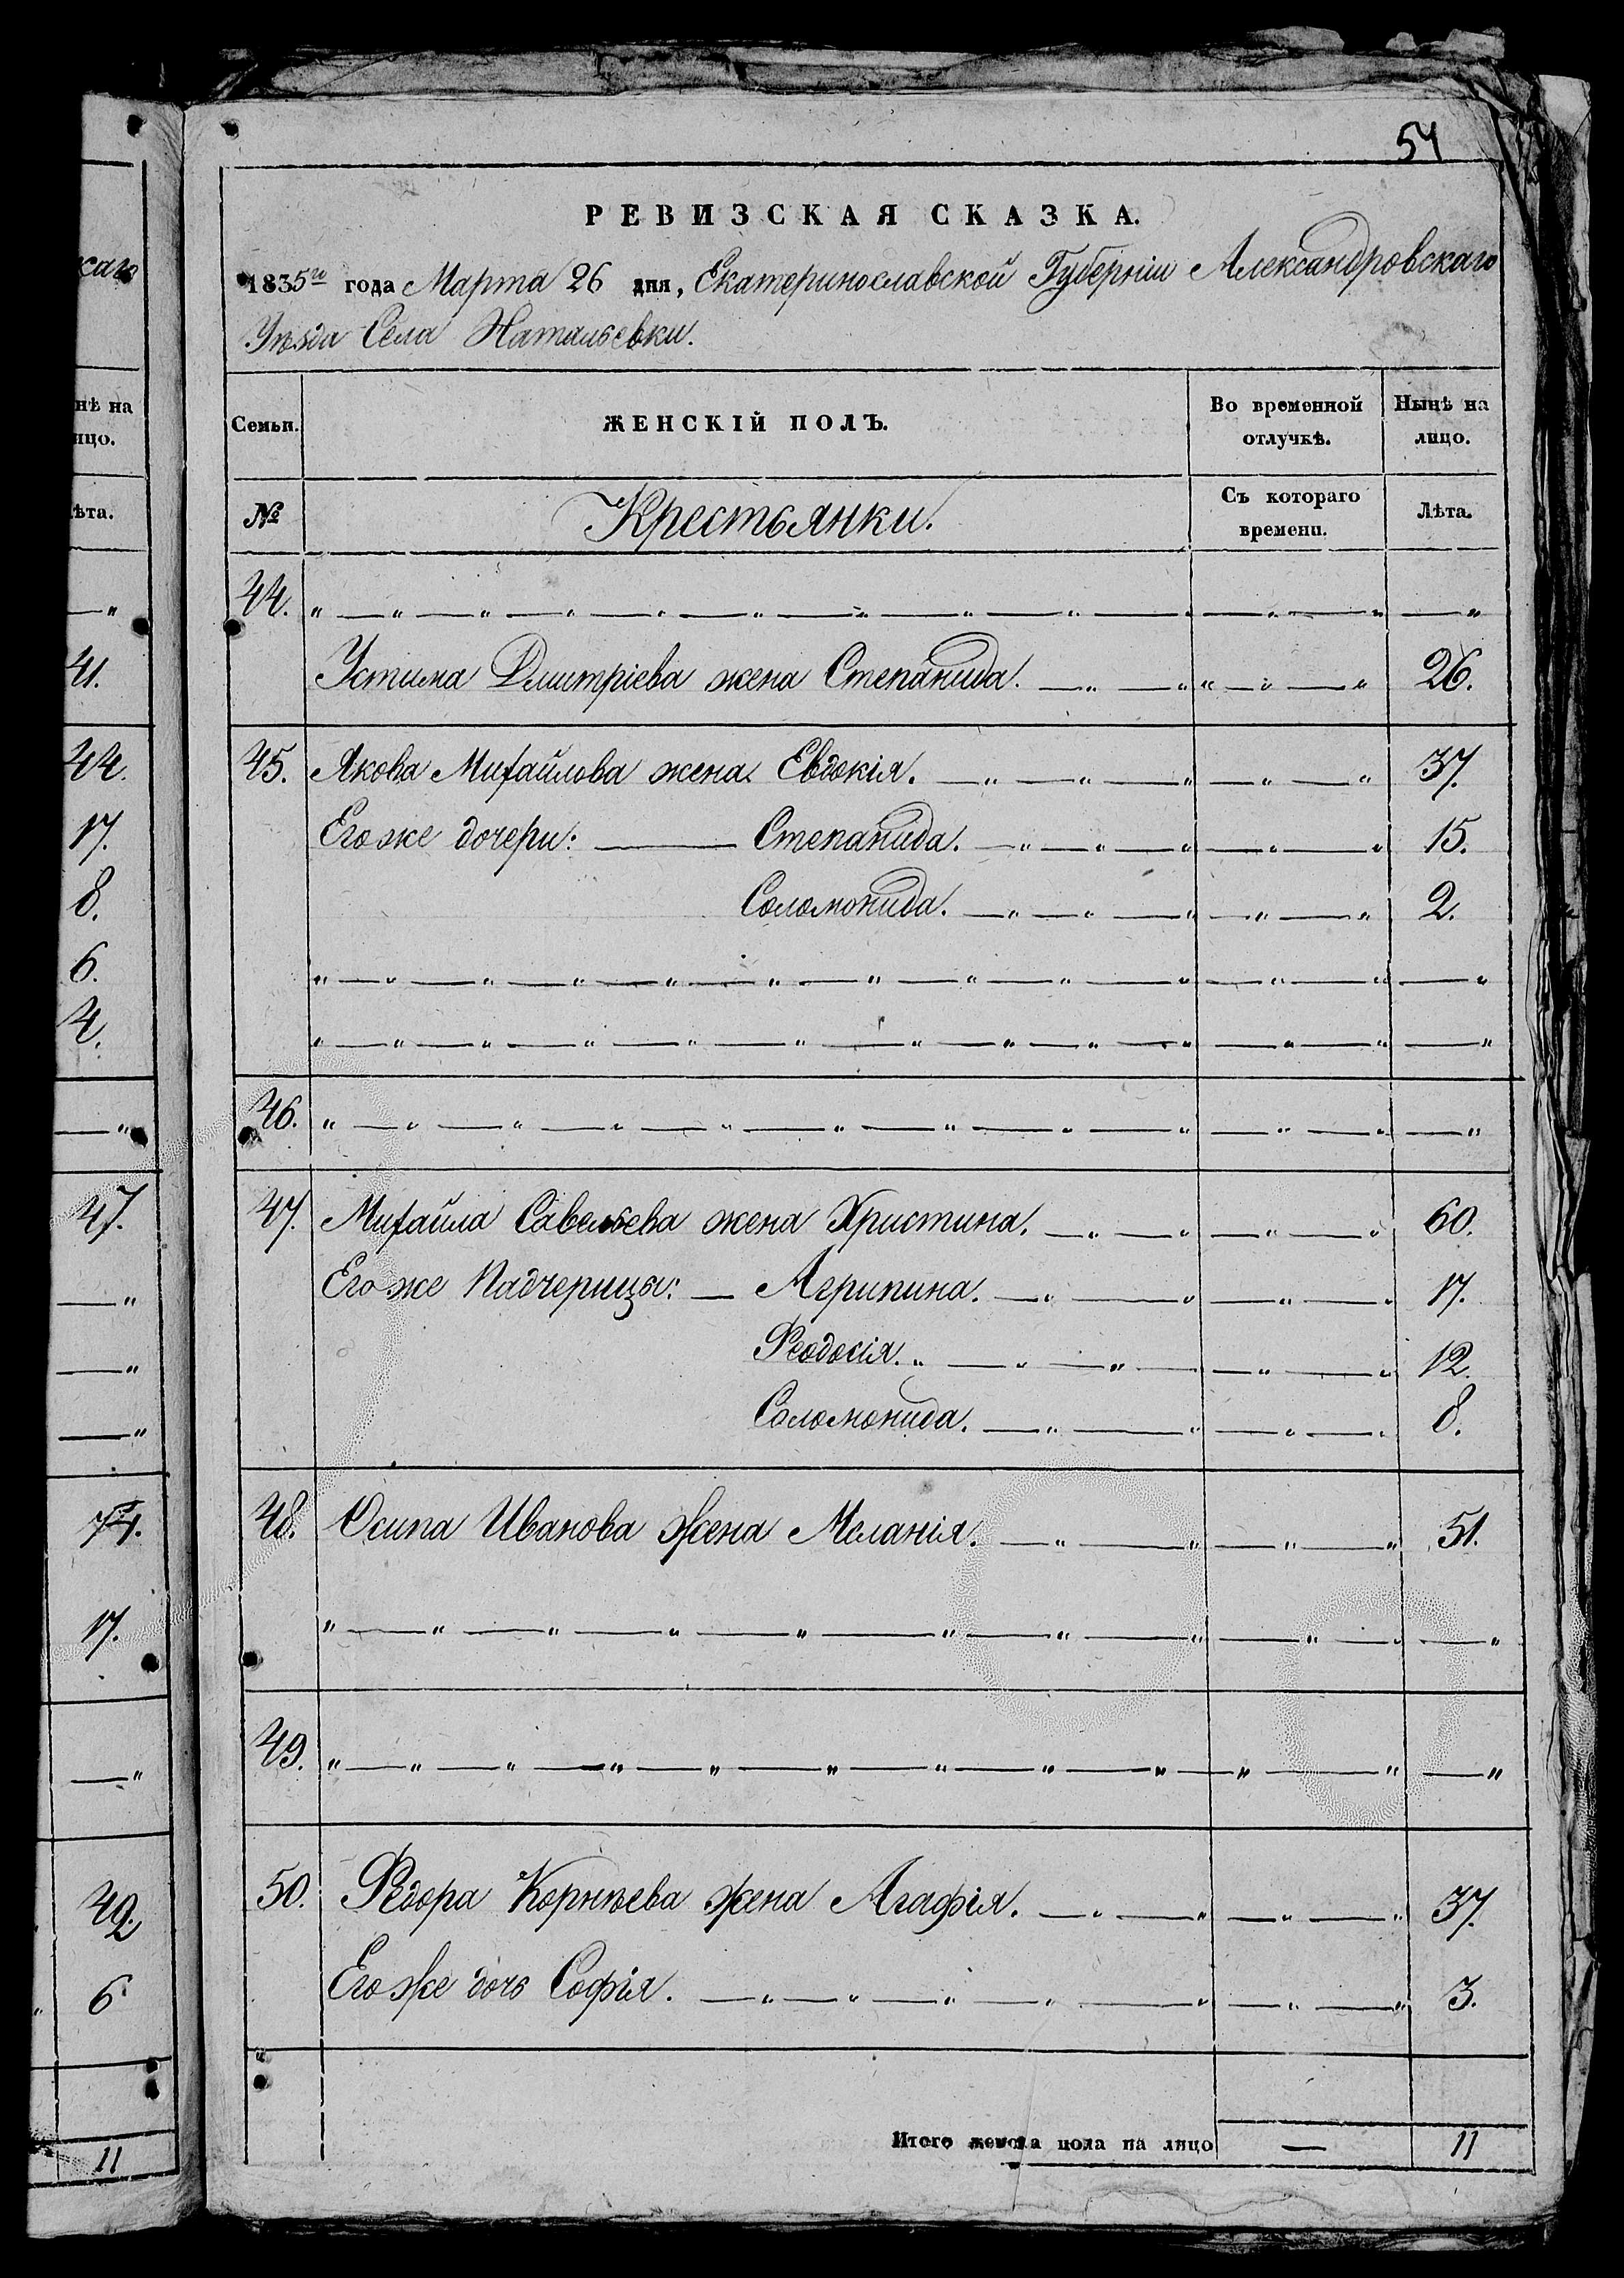 54
РЕВИЗСКАЯ СКАЗКА.
1835го года Марта 26 дня, Екатеринославской Губерніи Александровскаго
Уѣзда Села Натальевки.
Семьи. ЖЕНСКІЙ ПОЛЪ. Во временной отлучкѣ. Нынѣ на лицо.
№ Крестьянки. Съ котораго времени. Лѣта.
44. „ — „ — „ — „ — „ — „ — „ — „ — „ — „ — „ — „ — „
Устима Дмитріева жена Степанида. — „ — „ „ — „ — „ 26.
45. Якова Михайлова жена Евдокія. — „ — „ — „ „ — „ 37.
Его же дочери: — Степанида. — „ — „ — „ — „ — „ 15.
Соломонида. — „ — „ — „ — „ — „ 2.
„ — „ — „ — „ — „ — „ — „ — „ — „ — „ — „ — „ — „
„ — „ — „ — „ — „ — „ — „ — „ — „ — „ — „ — „ — „
46. „ — „ — „ — „ — „ — „ — „ — „ — „ — „ — „ — „
47. Михайла Савельева жена Христина. — „ — „ — „ — „ 60.
Его же Падчерицы: — Агрипина. — „ — „ — „ — „ 17.
Феодосія. „ — „ — „ — „ — „ 12.
Соломонида. — „ — „ — „ — „ 8.
48. Осипа Иванова жена Меланія. — „ — „ — „ — „ 51.
„ — „ — „ — „ — „ — „ — „ — „ — „ — „ — „
49. „ — „ — „ — „ — „ — „ — „ — „ — „ — „ — „ — „
50. Федора Корнѣева жена Агафія. — „ — „ — „ — „ 37.
Его же дочь Софія. — „ — „ — „ — „ — „ — „ — „ 3.
Итого женска пола на лицо — 11
каго
нѣ на
ицо.
ѣта.
— „
41.
44.
17.
8.
6.
4.
— „
47.
— „
— „
— „
17.
— „
6
11